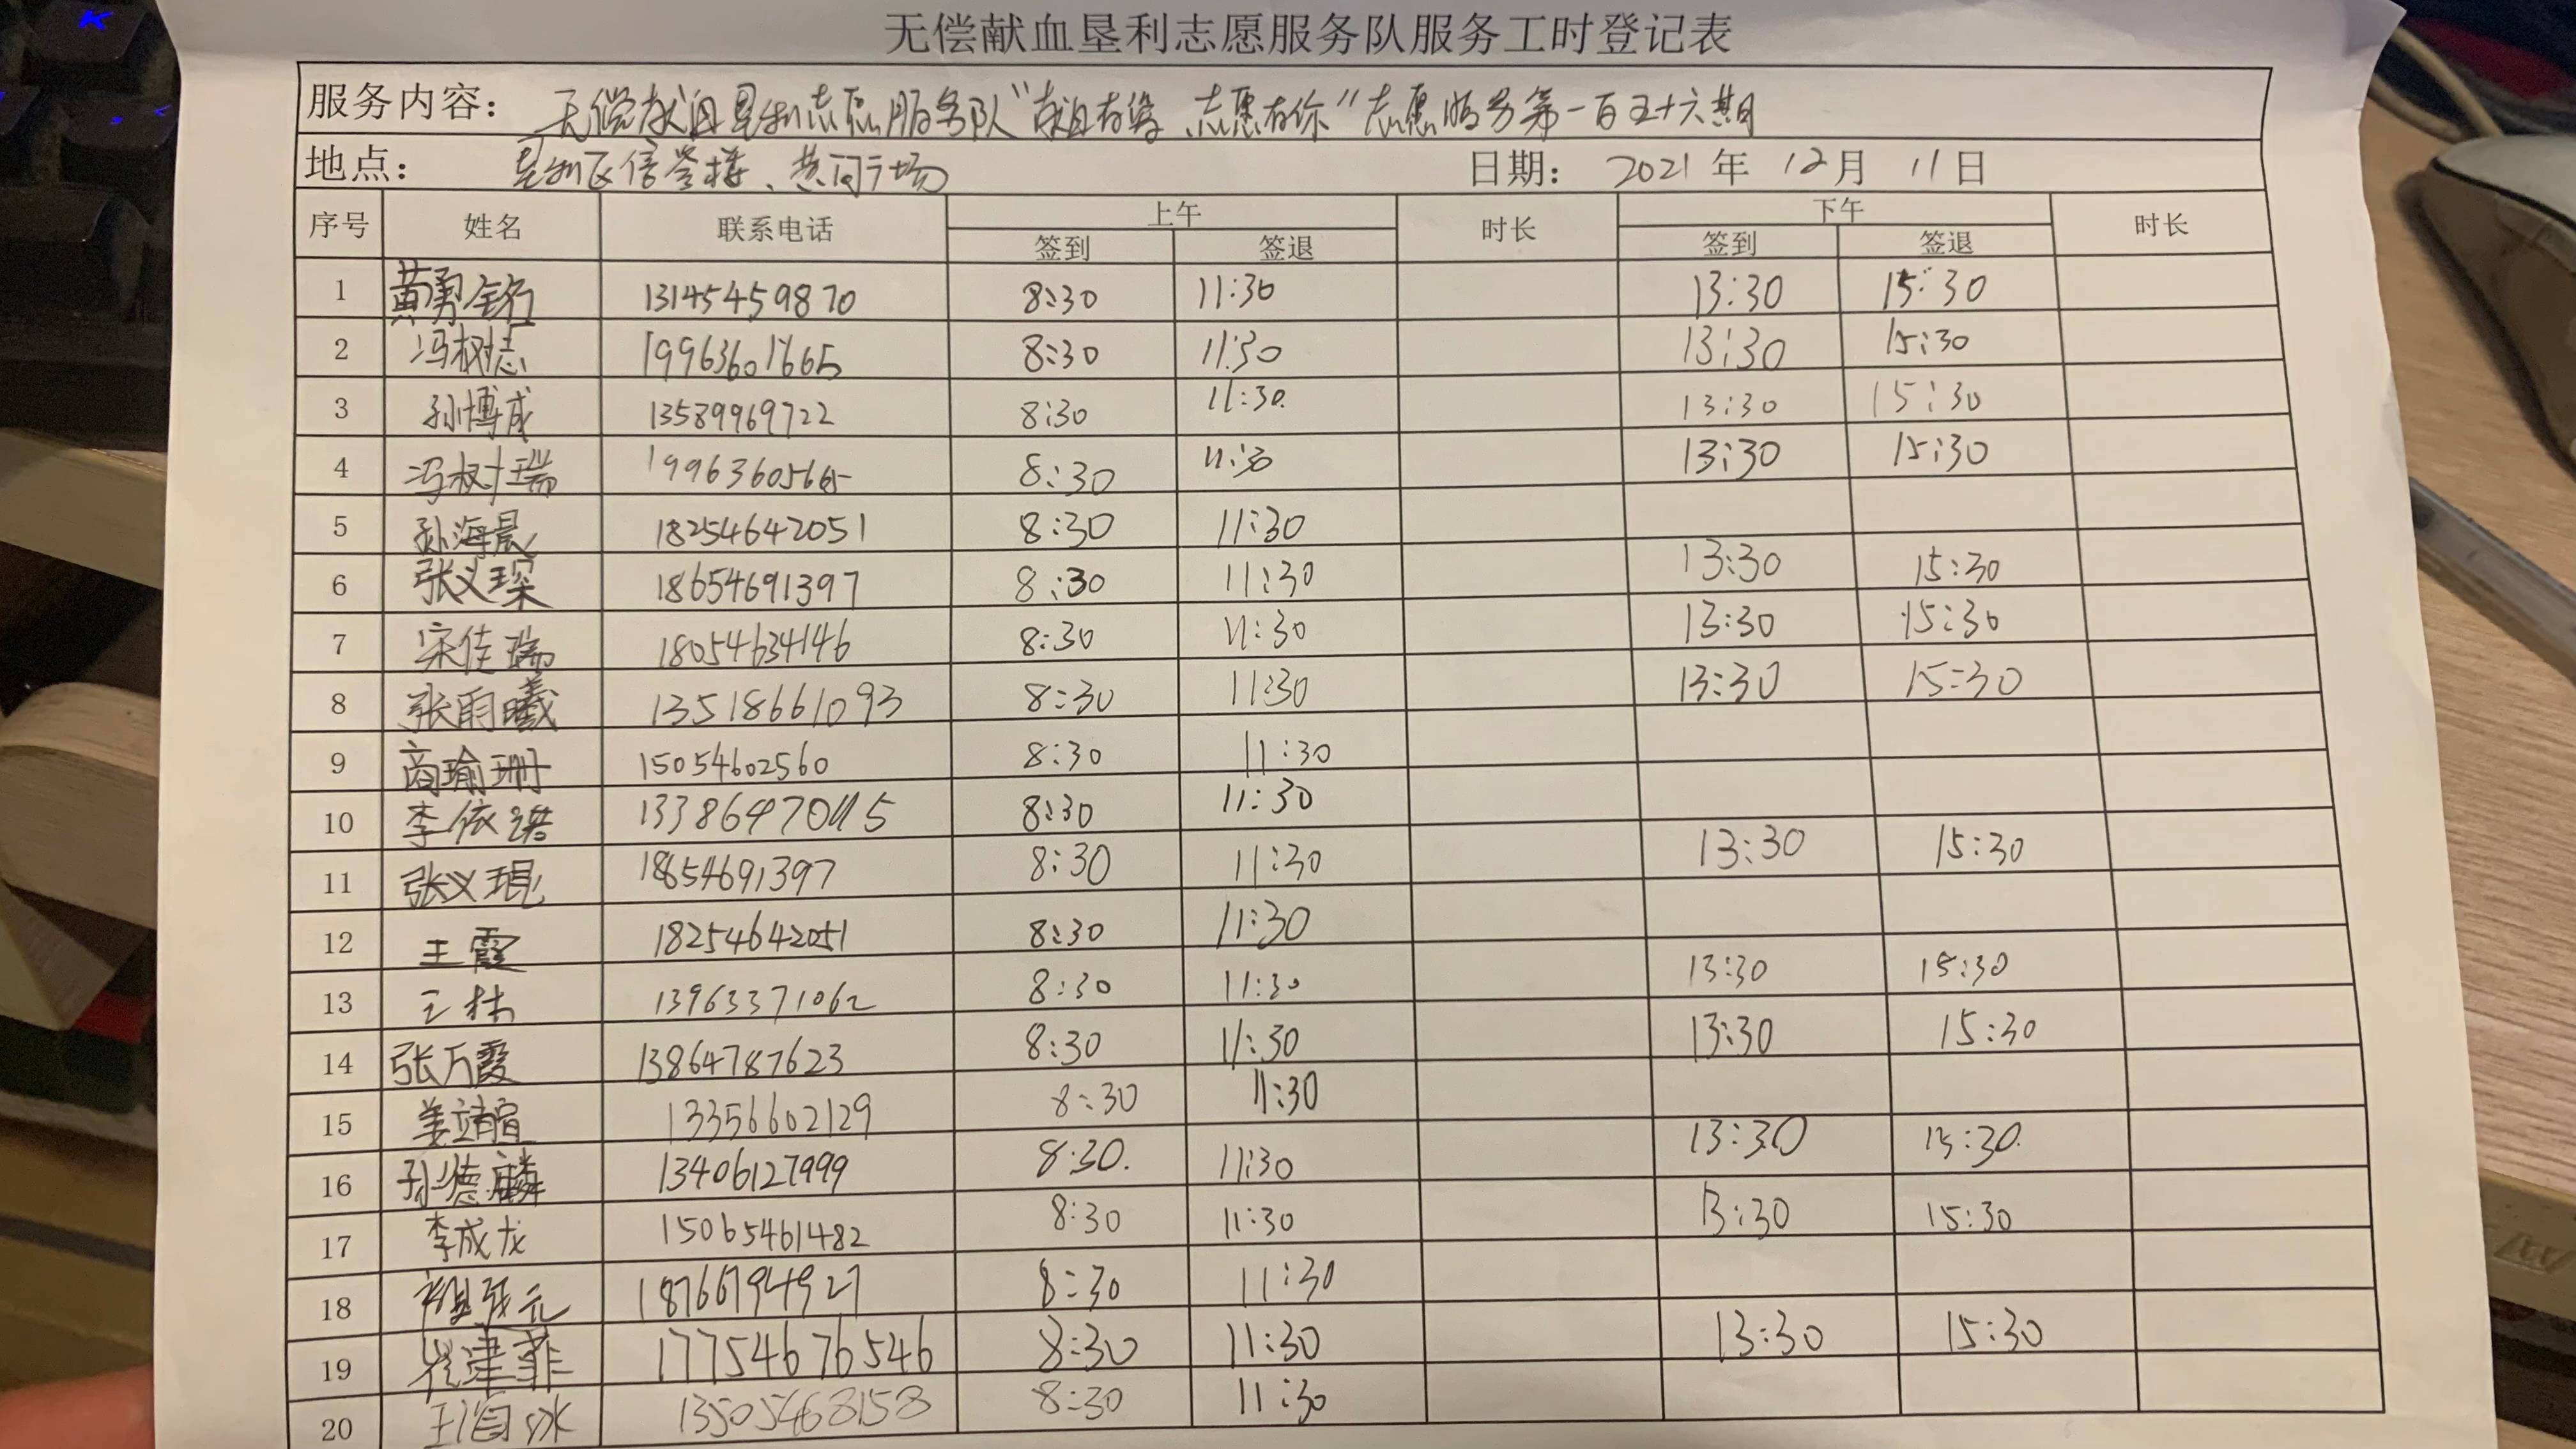 无偿献血垦利志愿服务队服务工时登记表
服务内容： 无偿献血垦利志愿服务队“献血有缘、志愿有你”志愿服务第一百五十六期
地点： 垦利区信誉楼、黄河广场 日期： 2021 年 12 月 11 日
序号 姓名 联系电话 上午 时长 下午 时长
签到 签退 签到 签退
1 黄勇铭 13145459870 8:30 11:30 13:30 15:30
2 冯树志 19963601665 8:30 11:30 13:30 15:30
3 孙博成 13589969722 8:30 11:30 13:30 15:30
4 冯树瑞 19963605665 8:30 11:30 13:30 15:30
5 孙海晨 18254642051 8:30 11:30
6 张义琛 18654691397 8:30 11:30 13:30 15:30
7 宋佳瑞 18054634146 8:30 11:30 13:30 15:30
8 张雨曦 13518661093 8:30 11:30 13:30 15:30
9 商瑜珊 15054602560 8:30 11:30
10 李依诺 8:30 11:30
11 张义琨 18654691397 8:30 11:30 13:30 15:30
12 王霞 18254642051 8:30 11:30
13 王林 13963371062 8:30 11:30 13:30 15:30
14 张万霞 13864787623 8:30 11:30 13:30 15:30
15 姜靖宣 13356602129 8:30 11:30
16 孙德麟 13406127999 8:30 11:30 13:30 15:30
17 李成龙 15065461482 8:30 11:30 13:30 15:30
18 元 18766794927 8:30 11:30
19 崔津菲 17754676546 8:30 11:30 13:30 15:30
20 王 冰 13505468158 8:30 11:30